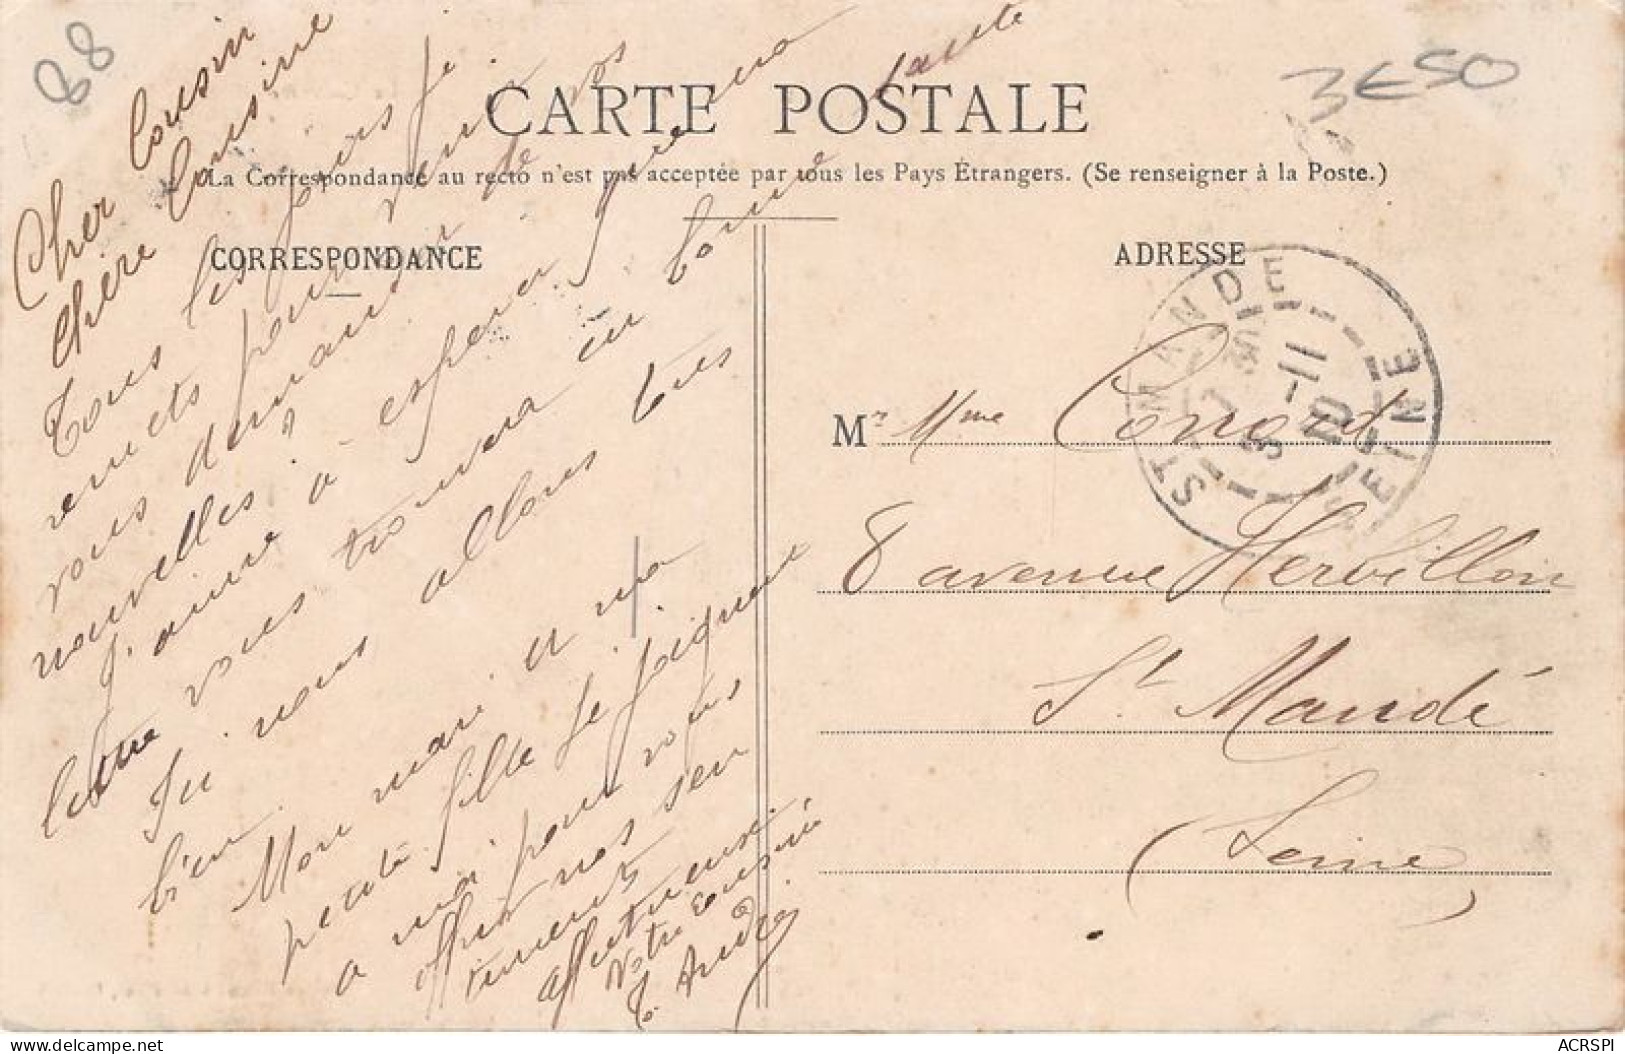 88
3€50
CARTE POSTALE
La Correspondance au recto n'est pas acceptée par tous les Pays Étrangers. (Se renseigner à la Poste.)
CORRESPONDANCE
Cher Cousin
Chère Cousine
Tous les jours je
remets pour venir
vous demander de vos
nouvelles, j'aime à espérer que ma
lettre vous trouvera en bonne santé
Ici nous allons très
bien
Mon mari et ma
petite fille se joignent
a moi pour vous
offrir nos sen
timents
affectueux.
Votre cousine
André
ADRESSE
ST MANDE
SEINE
11
Mr Mme Conord
8 avenue Herbillon
St Mandé
(Seine)
delcampe.net
ACRSPI